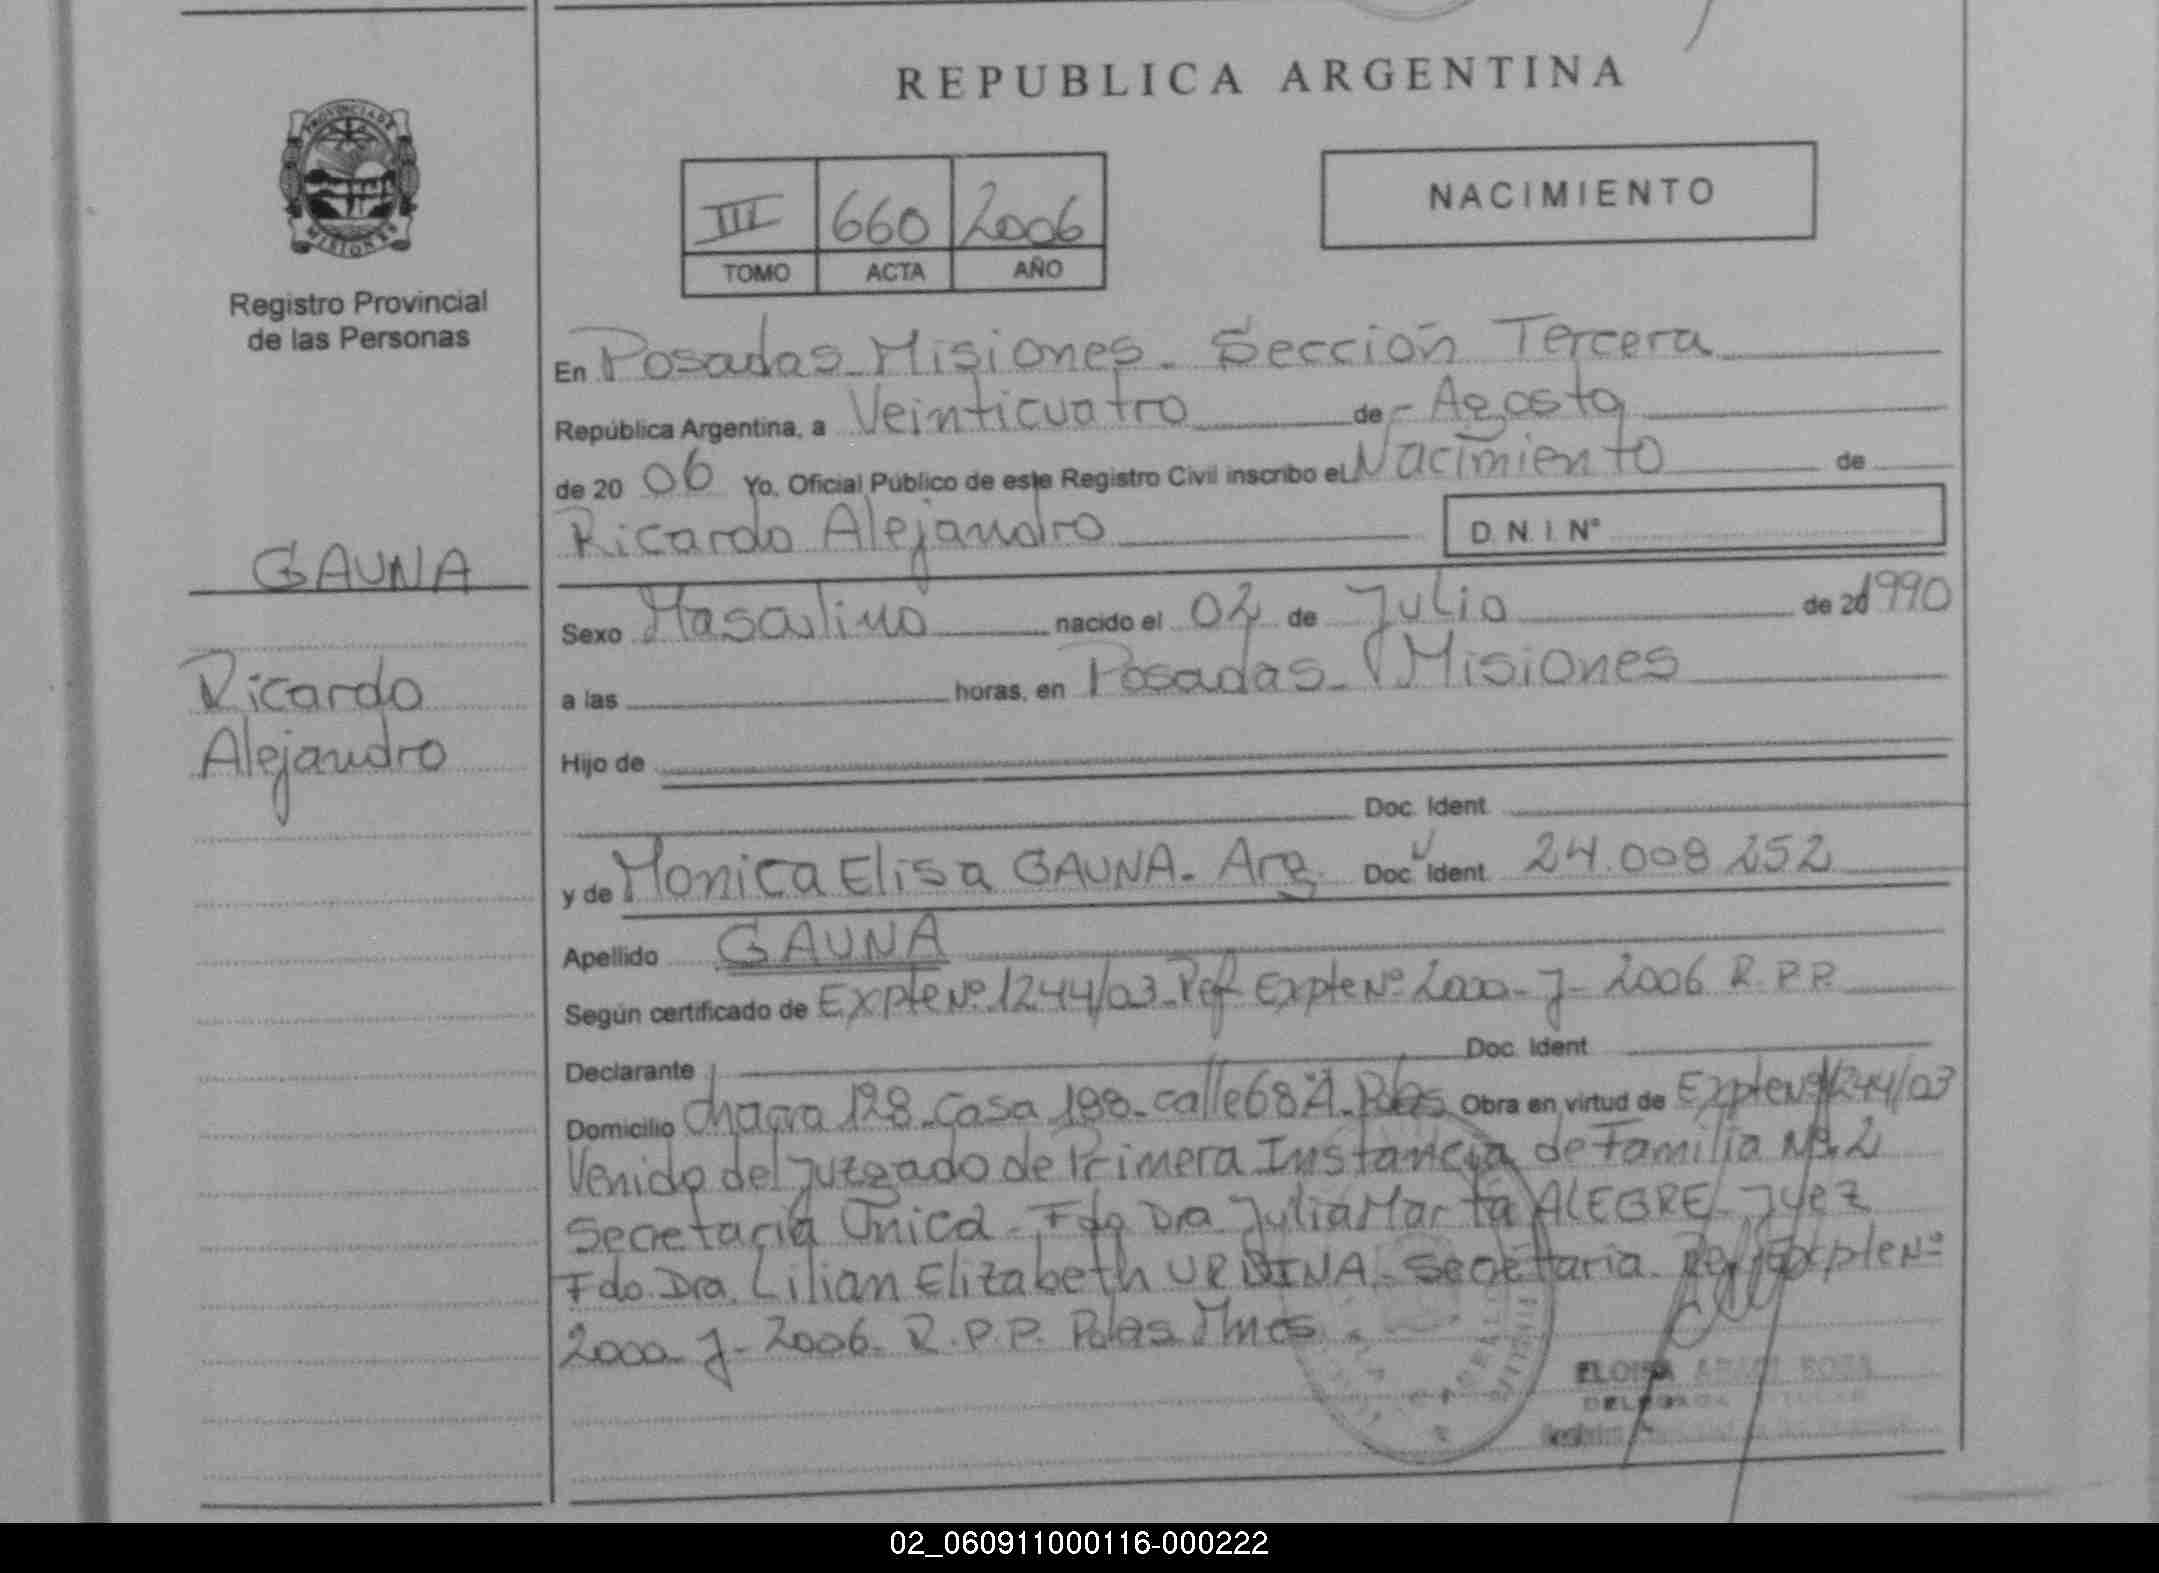 REPUBLICA ARGENTINA
PROVINCIA DE
MISIONES
Registro Provincial
de las Personas
III 660 2006
TOMO ACTA AÑO
NACIMIENTO
GAUNA
Ricardo
Alejandro
En Posadas Misiones - Sección Tercera
República Argentina, a Veinticuatro de - Agosto
de 20 06 Yo, Oficial Público de este Registro Civil inscribo el Nacimiento de
Ricardo Alejandro D.N.I. N°
Sexo Masculino nacido el 02 de Julio de 20 1990
a las horas, en Posadas - Misiones
Hijo de
Doc. Ident.
y de Monica Elisa GAUNA - Arg. Doc. Ident. 24.008.252
Apellido GAUNA
Según certificado de Expte Nº 1244/03 - Ref Expte Nº 2000 - J - 2006 R.P.P.
Declarante Doc. Ident.
Domicilio Chacra 128 - Casa 188 - calle 68 A - Pdas Obra en virtud de Expte Nº 1244/03
Venido del Juzgado de Primera Instancia de Familia Nº 2
Secretaria Unica - Fdo Dra Julia Marta ALEGRE - Juez
Fdo. Dra. Lilian Elizabeth URBINA - Secretaria Ref Expte Nº
2000 - J - 2006 - R.P.P. Pdas Mnes
02_060911000116-000222